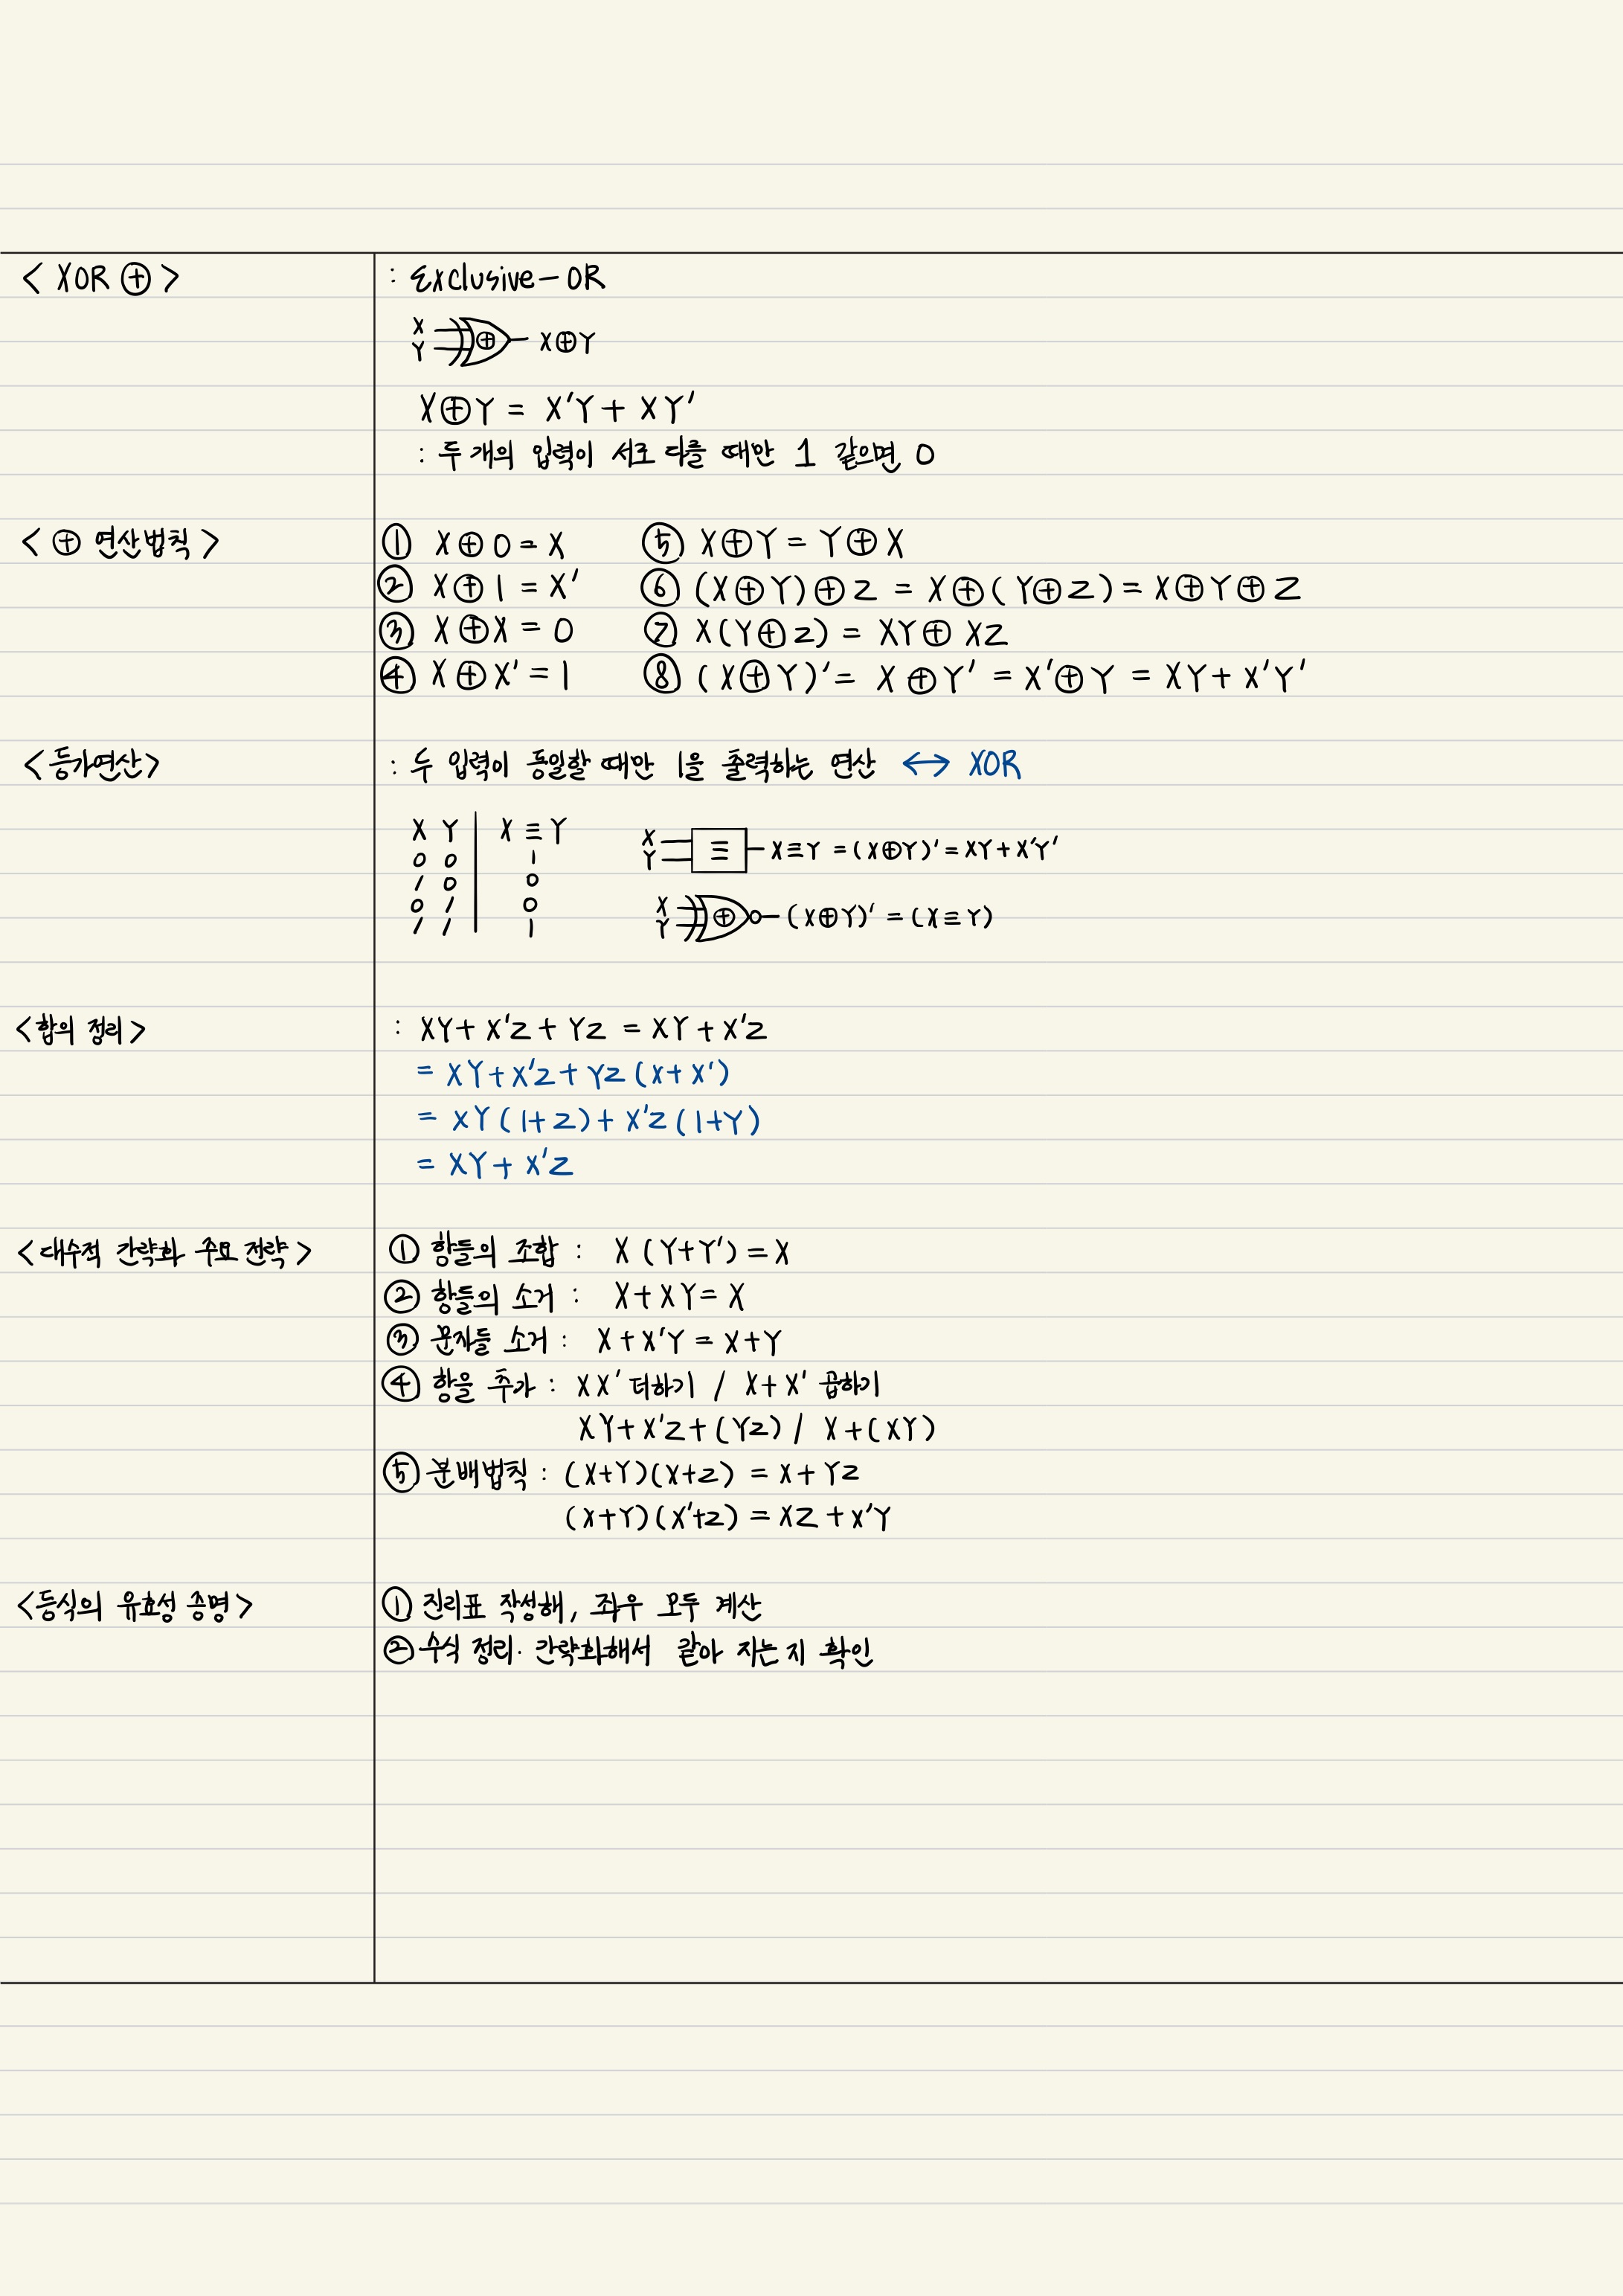 < XOR ⊕ >
: Exclusive-OR
X
Y
⊕
X⊕Y
X⊕Y = X'Y + XY'
: 두 개의 입력이 서로 다를 때만 1 같으면 0
< ⊕ 연산법칙 >
① X⊕0 = X ⑤ X⊕Y = Y⊕X
② X⊕1 = X' ⑥ (X⊕Y)⊕Z = X⊕(Y⊕Z) = X⊕Y⊕Z
③ X⊕X = 0 ⑦ X(Y⊕Z) = XY⊕XZ
④ X⊕X' = 1 ⑧ (X⊕Y)' = X⊕Y' = X'⊕Y = XY + X'Y'
<등가연산>
: 두 입력이 동일할 때만 1을 출력하는 연산 ↔ XOR
X Y X≡Y
0 0 1
1 0 0
0 1 0
1 1 1
X
Y
≡
X≡Y = (X⊕Y)' = XY + X'Y'
X
Y
⊕
(X⊕Y)' = (X≡Y)
<합의 정리>
: XY + X'Z + YZ = XY + X'Z
= XY + X'Z + YZ (X+X')
= XY(1+Z) + X'Z(1+Y)
= XY + X'Z
<대수적 간략화 주요 전략>
① 항들의 조합 : X (Y+Y') = X
② 항들의 소거 : X + XY = X
③ 문자들 소거 : X + X'Y = X+Y
④ 항을 추가 : XX' 더하기 / X+X' 곱하기
XY + X'Z + (YZ) / X+(XY)
⑤ 분배법칙 : (X+Y)(X+Z) = X + YZ
(X+Y)(X'+Z) = XZ + X'Y
<등식의 유효성 증명>
① 진리표 작성해, 좌우 모두 계산
② 수식 정리· 간략화해서 같아 지는지 확인